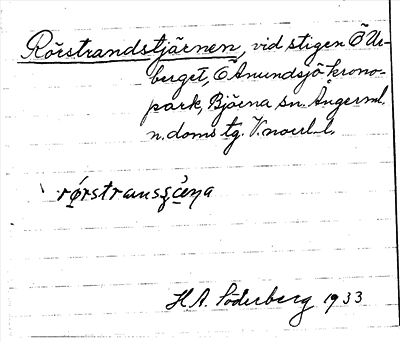 Rörstrandstjärnen, vid stigen Ö Ur-
berget, Ö Anundsjö krono-
park, Björna sn. Ångerml.
n. doms tg. V.norrl. l.
H.A. Söderberg 1933